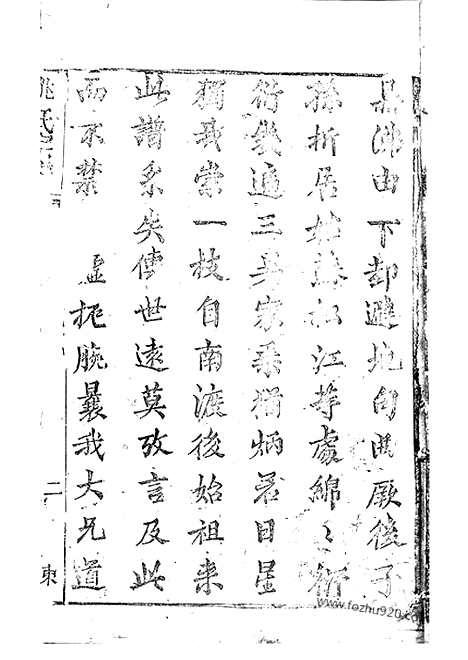 吳沸由下邳避地句曲厥後子
孫析居姑蘇松江等處綿々衍
衍幾遍三吳家乘猶炳若日星
獨我崇一枝自南渡後始祖來
此譜系失傳世遠莫攷言及此
而不禁 扼腕曩我大兄道
氏
二
東
www.fozhu920.com